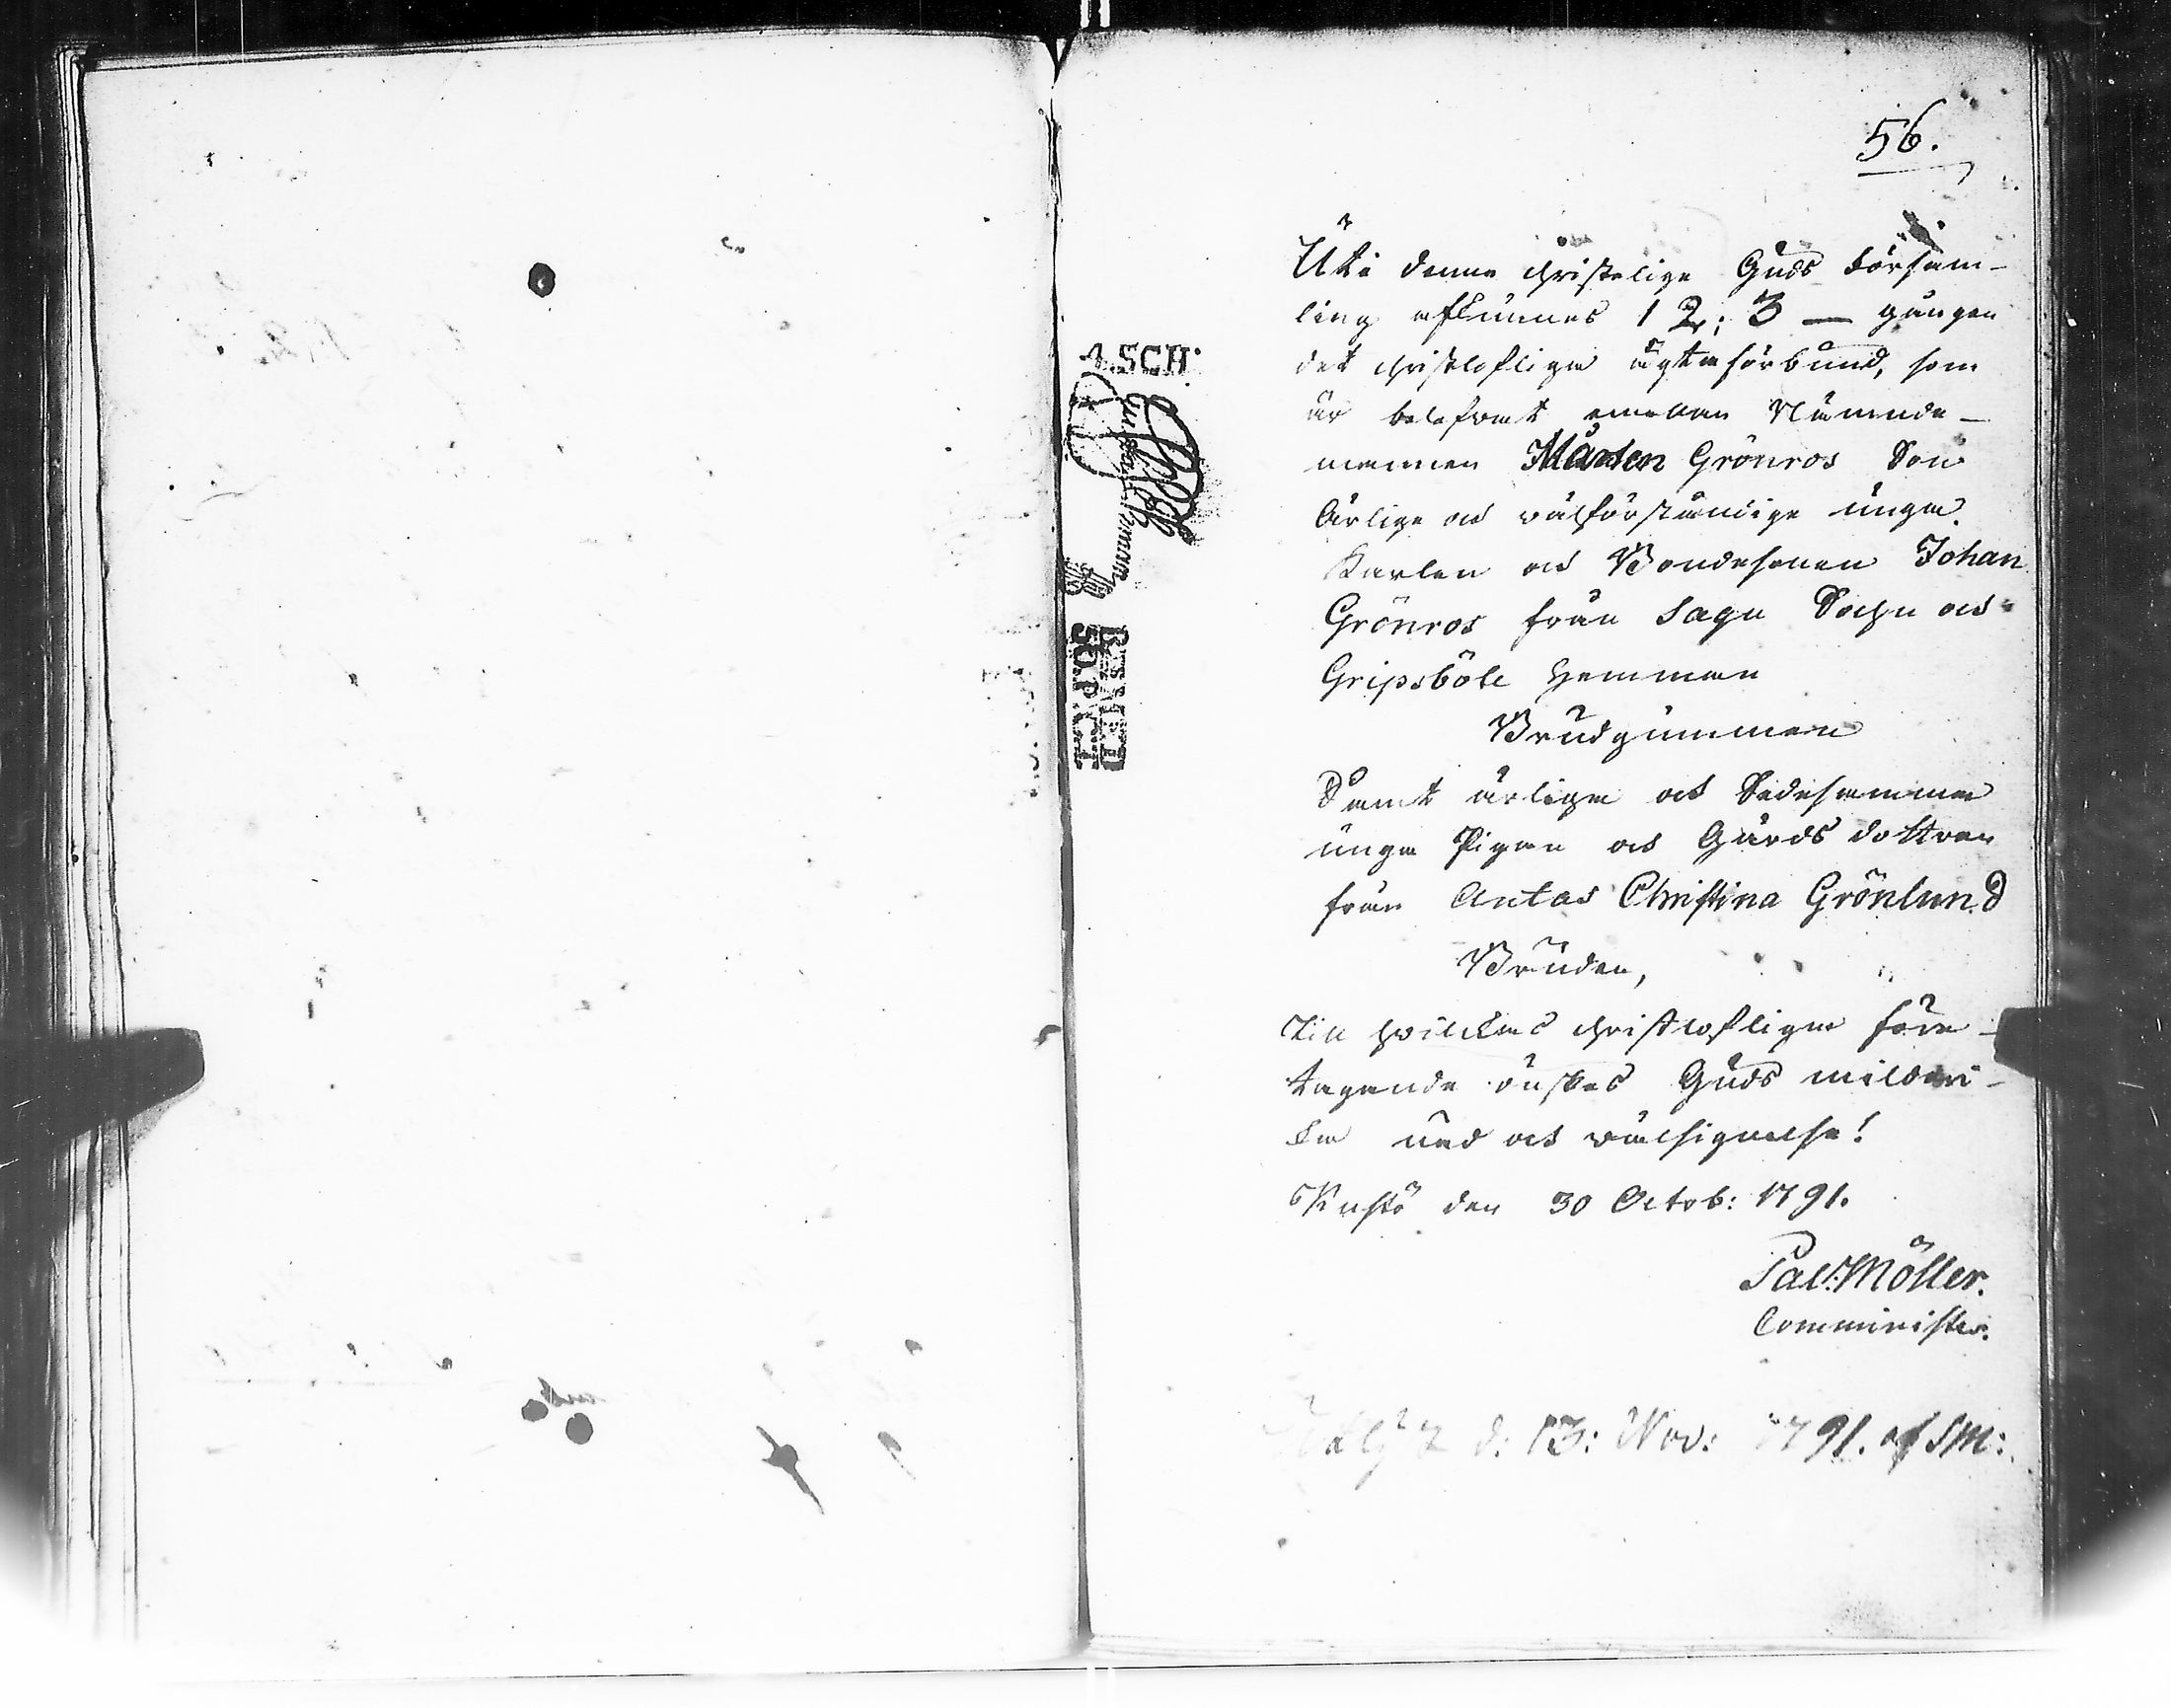 56.
Uti denna christelige Guds Försam-
ling aflÿnnes 1 2; 3 — gången
det christloflige ägtaförbund, som
är beleswat emellan Nämnde-
mannen Mårten Grönros Son
Ärlige och wälförståndige unge
Karlen och Bondesonen Johan
Grönros från Sagu Sochn och
Gripsböle hemman
Brudgummen
Samt ärliga och Sedesamma
unga Pigan och Gårds dottren
från Antas Christina Grönlund
Bruden,
Till hwilckas christlofliga före-
tagande önskas Guds mildri-
ka nåd och wälsignelse!
Kustö den 30 Octob: 1791.
Sal: Möller.
Comminister.
d: 13: Nov: 1791. af SM:
4 SCH·